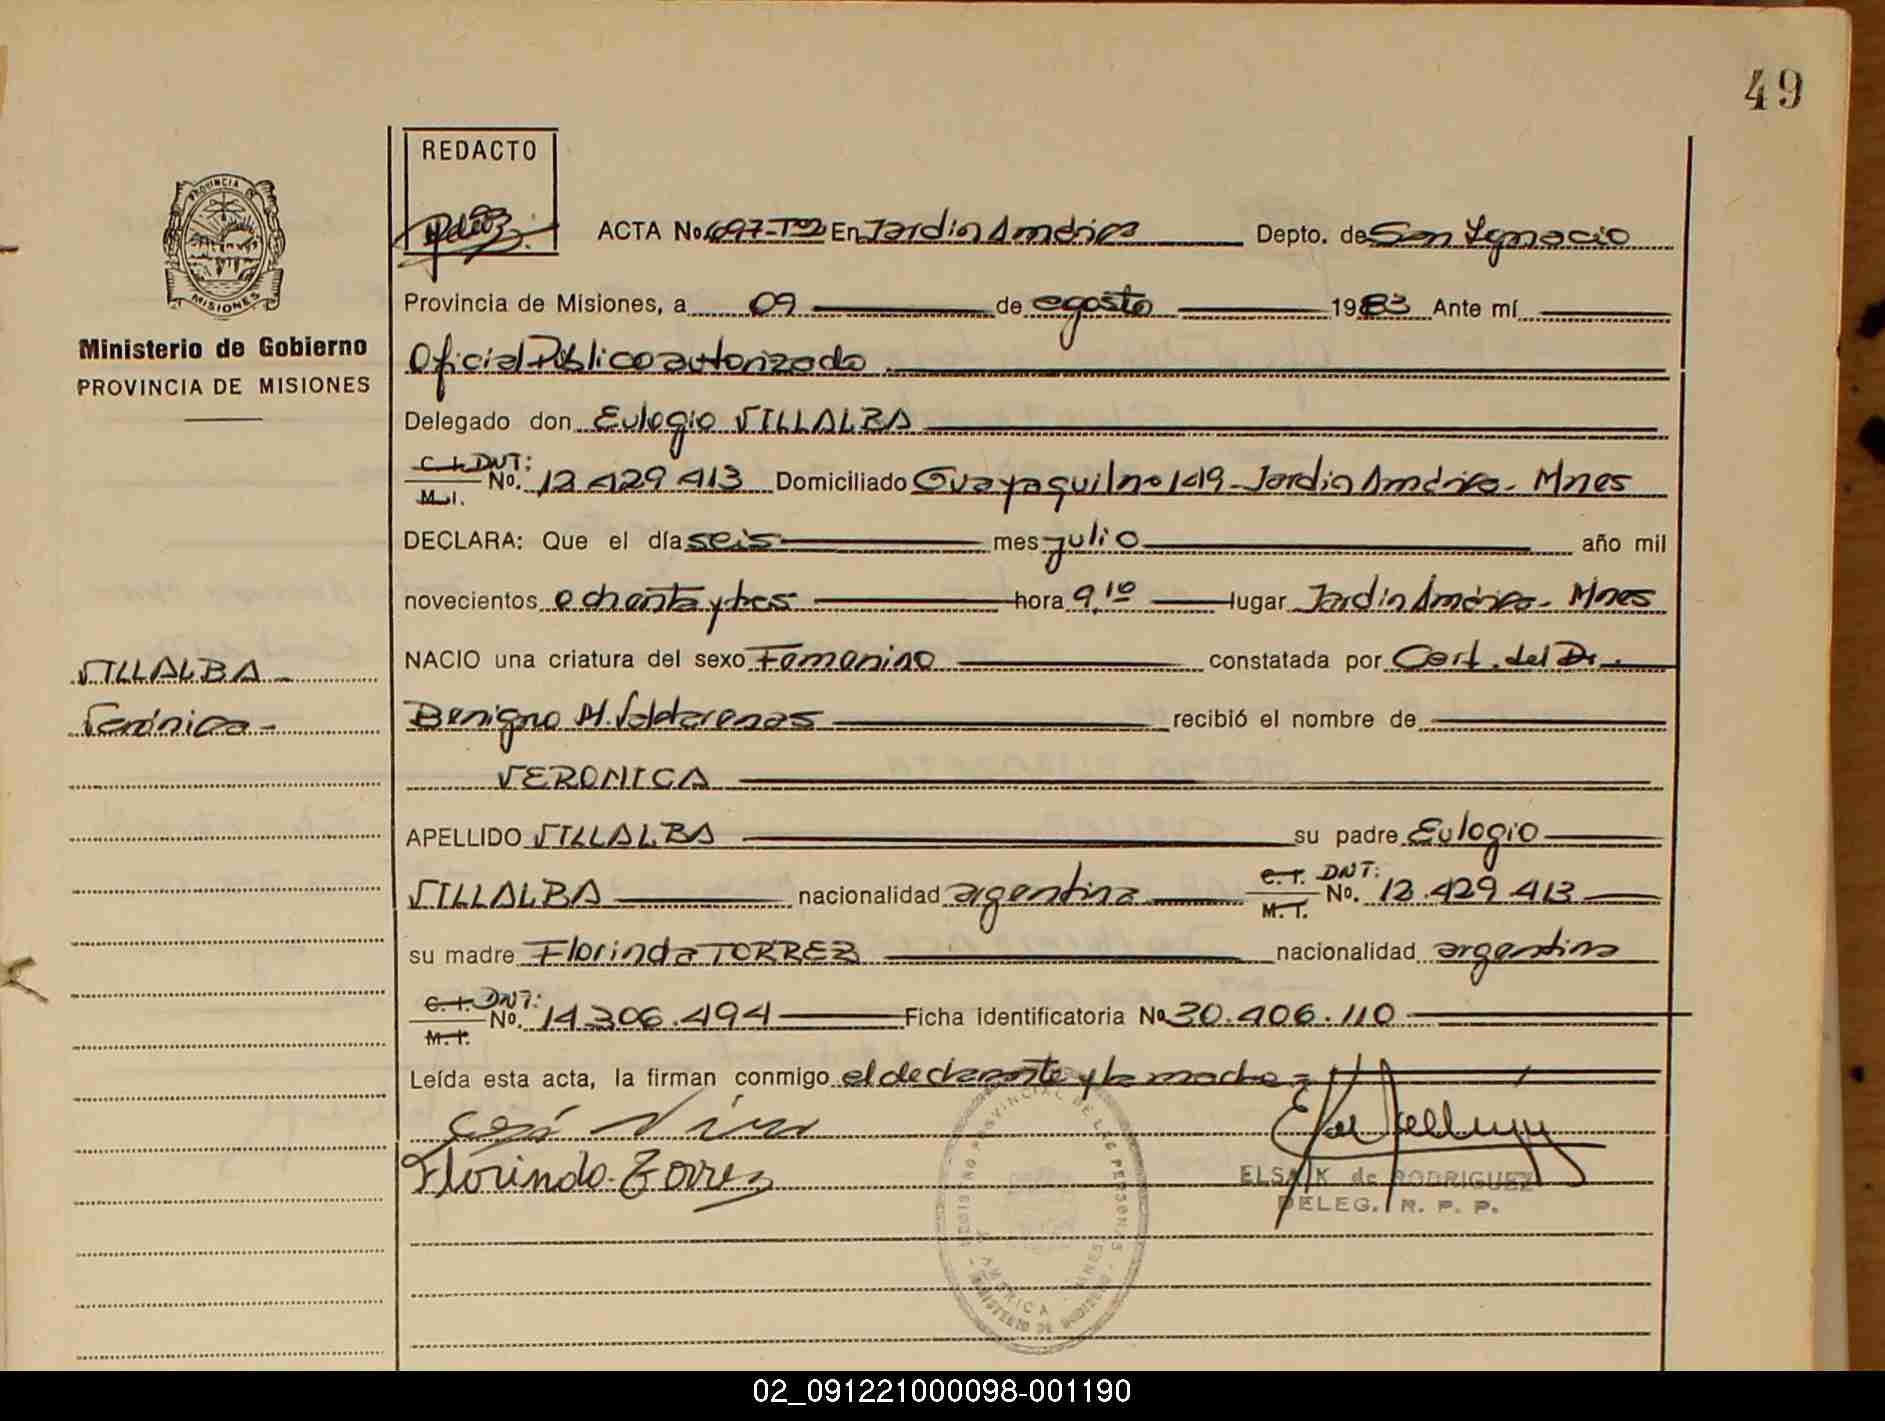 49
REDACTO
ACTA No. 697-Tº2 En Jardín América Depto. de San Ignacio
PROVINCIA DE MISIONES
Provincia de Misiones, a 09 de agosto 1983 Ante mí
Ministerio de Gobierno
PROVINCIA DE MISIONES
Oficial Público autorizado
Delegado don Eulogio VILLALBA
C.I. DNI: M.I. No. 12.429.413 Domiciliado Guayaquil nº 149 - Jardín América - Mnes
DECLARA: Que el día seis mes julio año mil
novecientos ochenta y tres hora 9,10 lugar Jardín América - Mnes
VILLALBA -
NACIO una criatura del sexo Femenino constatada por Cert. del Dr.
Verónica -
Benigno M. Valdarenas recibió el nombre de
VERONICA
APELLIDO VILLALBA su padre Eulogio
VILLALBA nacionalidad argentina C.I. DNI: M.I. No. 12.429.413
su madre Florinda TORREZ nacionalidad argentina
C.I. DNI: M.I. No. 14.306.494 Ficha identificatoria No. 30.406.110
Leída esta acta, la firman conmigo el declarante y la madre =
Florinda Torrez
ELSA K de RODRIGUEZ
DELEG. R. P. P.
REGISTRO PROVINCIAL DE LAS PERSONAS
AMERICA - MNES
MINISTERIO DE GOBIERNO
02_091221000098-001190